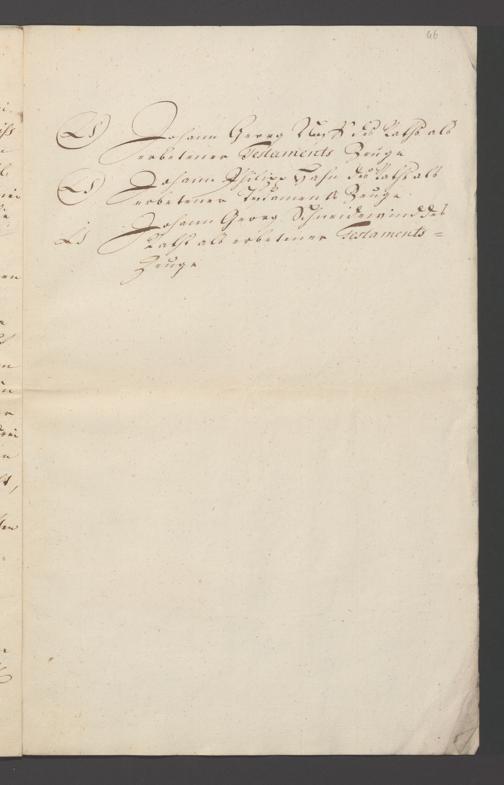 66
LS Johann Georg des Raths als
erbetener Testaments Zeuge
LS Johann Philipp Hahn des Raths als
erbetener Testaments Zeuge
LS Johann Georg Schneidewind des
Raths als erbetener Testaments-
Zeuge